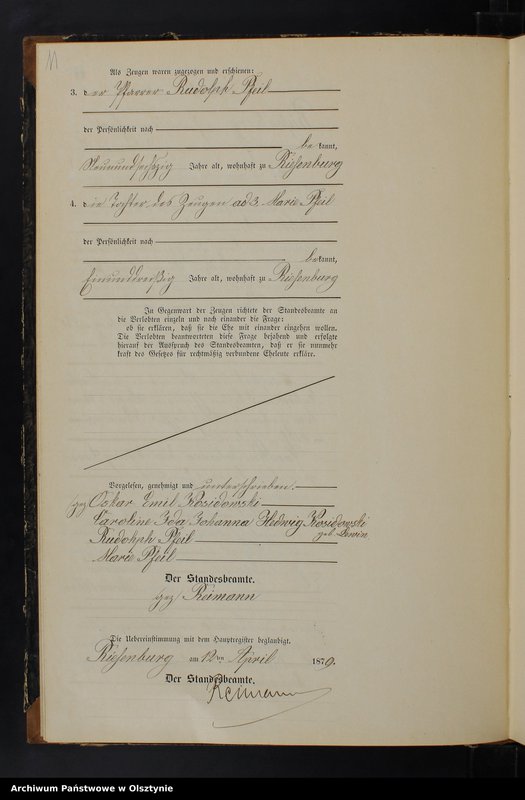 11
Als Zeugen waren zugezogen und erschienen:
3. der Pfarrer Rudolph Pfeil
der Persönlichkeit nach
bekannt,
Neunundsechszig Jahre alt, wohnhaft zu Riesenburg
4. die Tochter des Zeugen ad 3, Marie Pfeil
der Persönlichkeit nach
bekannt,
Einunddreißig Jahre alt, wohnhaft zu Riesenburg
In Gegenwart der Zeugen richtete der Standesbeamte an
die Verlobten einzeln und nach einander die Frage:
ob sie erklären, daß sie die Ehe mit einander eingehen wollen.
Die Verlobten beantworteten diese Frage bejahend und erfolgte
hierauf der Ausspruch des Standesbeamten, daß er sie nunmehr
kraft des Gesetzes für rechtmäßig verbundene Eheleute erkläre.
Vorgelesen, genehmigt und unterschrieben.
gez Oskar Emil Kosidowski
Caroline Ida Johanna Hedwig Kosidowski
geb.
Rudolph Pfeil
Marie Pfeil
Der Standesbeamte.
gez/ Reimann
Die Uebereinstimmung mit dem Hauptregister beglaubigt.
Riesenburg am 12ten April 1879.
Der Standesbeamte.
Reimann
Archiwum Państwowe w Olsztynie